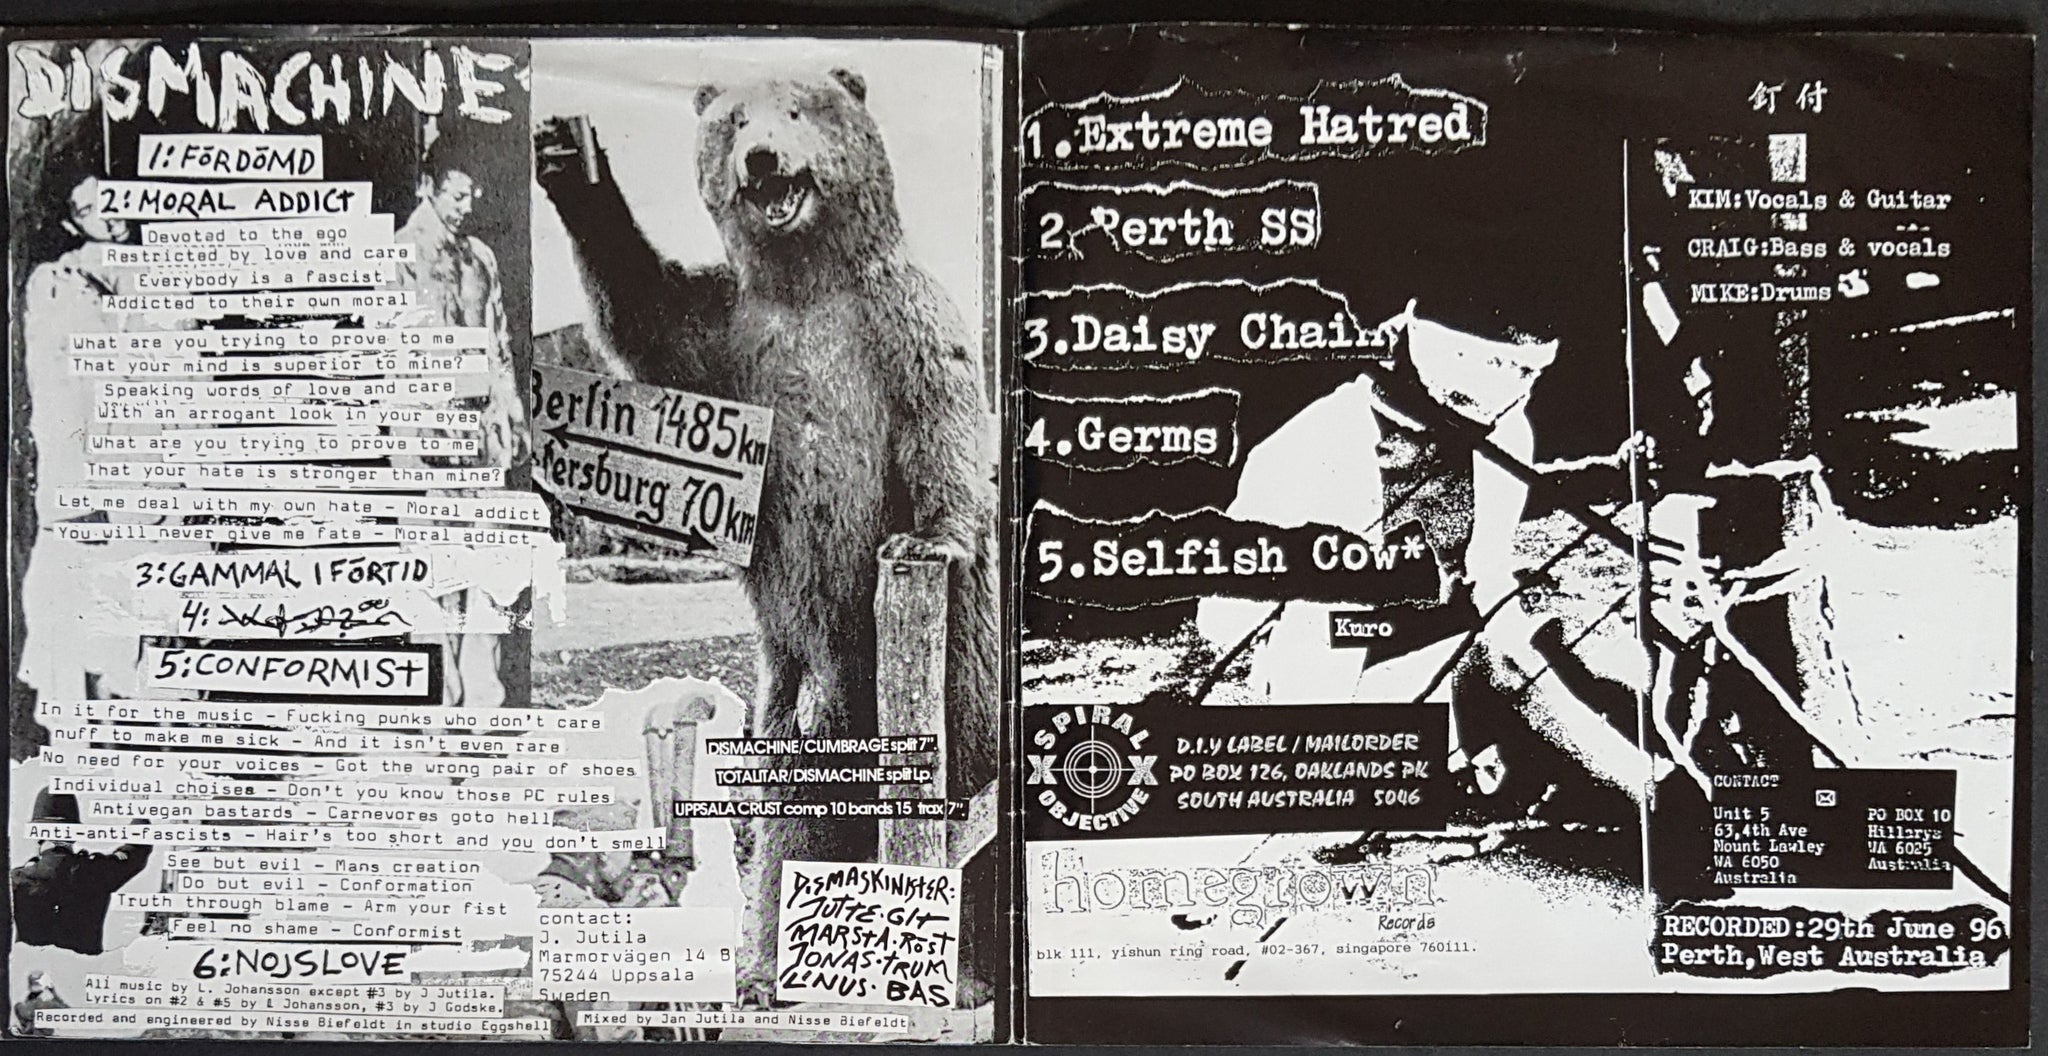 DISMACHINE
1: FÖRDÖMD
2: MORAL ADDICT
Devoted to the ego
Restricted by love and care
Everybody is a fascist
Addicted to their own moral
What are you trying to prove to me
That your mind is superior to mine?
Speaking words of love and care
With an arrogant look in your eyes
What are you trying to prove to me
That your hate is stronger than mine?
Let me deal with my own hate - Moral addict
You will never give me fate - Moral addict
3: GAMMAL I FÖRTID
4:
5: CONFORMIST
In it for the music - Fucking punks who don't care
nuff to make me sick - And it isn't even rare
No need for your voices - Got the wrong pair of shoes
Individual choises - Don't you know those PC rules
Antivegan bastards - Carnevores goto hell
Anti-anti-fascists - Hair's too short and you don't smell
See but evil - Mans creation
Do but evil - Conformation
Truth through blame - Arm your fist
Feel no shame - Conformist
6: NOJSLOVE
All music by L. Johansson except #3 by J Jutila.
Lyrics on #2 & #5 by L Johansson, #3 by J Godske.
Recorded and engineered by Nisse Biefeldt in studio Eggshell
Berlin 1485km
tersburg 70km
DISMACHINE/CUMBRAGE split 7".
TOTALITAR/DISMACHINE split Lp.
UPPSALA CRUST comp 10 bands 15 trax 7".
contact:
J. Jutila
Marmorvägen 14 B
75244 Uppsala
Sweden
DISMASKINISTER:
JUTTE·GIT
MARSTA·RÖST
JONAS·TRUM
LINUS·BAS
Mixed by Jan Jutila and Nisse Biefeldt
1.Extreme Hatred
2.Perth SS
3.Daisy Chain
4.Germs
5.Selfish Cow*
Kuro
釘付
KIM:Vocals & Guitar
CRAIG:Bass & vocals
MIKE:Drums
SPIRAL
X X
OBJECTIVE
D.I.Y LABEL / MAILORDER
PO BOX 126, OAKLANDS PK
SOUTH AUSTRALIA 5046
homegrown
Records
blk 111, yishun ring road, #02-367, singapore 760111.
CONTACT
Unit 5
63,4th Ave
Mount Lawley
WA 6050
Australia
PO BOX 10
Hillarys
WA 6025
Australia
RECORDED:29th June 96
Perth,West Australia